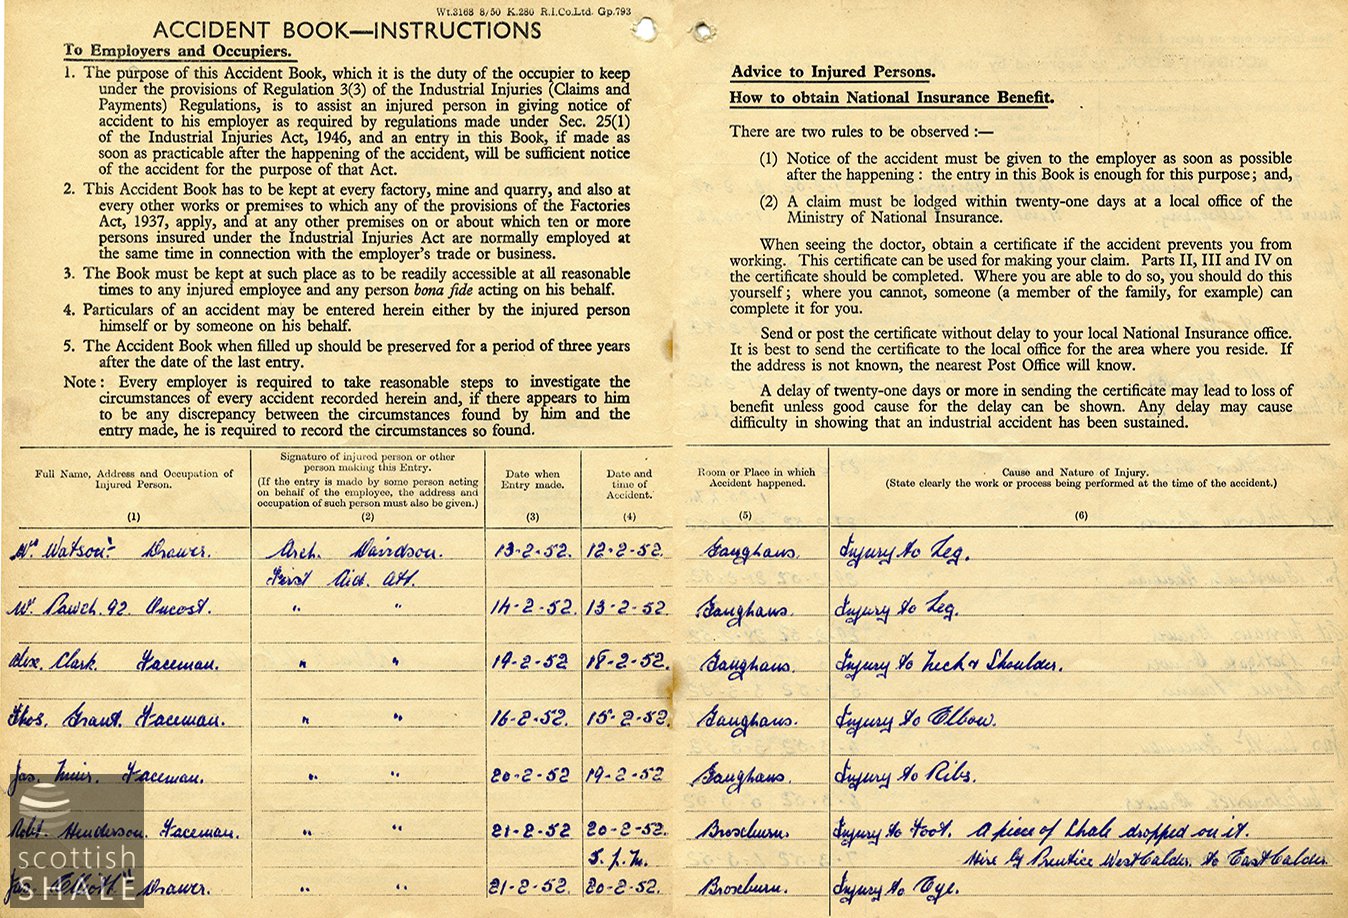 Wt.3168 8/50 K.280 R.I.Co.Ltd. Gp.793
ACCIDENT BOOK—INSTRUCTIONS
To Employers and Occupiers.
1. The purpose of this Accident Book, which it is the duty of the occupier to keep
under the provisions of Regulation 3(3) of the Industrial Injuries (Claims and
Payments) Regulations, is to assist an injured person in giving notice of
accident to his employer as required by regulations made under Sec. 25(1)
of the Industrial Injuries Act, 1946, and an entry in this Book, if made as
soon as practicable after the happening of the accident, will be sufficient notice
of the accident for the purpose of that Act.
2. This Accident Book has to be kept at every factory, mine and quarry, and also at
every other works or premises to which any of the provisions of the Factories
Act, 1937, apply, and at any other premises on or about which ten or more
persons insured under the Industrial Injuries Act are normally employed at
the same time in connection with the employer's trade or business.
3. The Book must be kept at such place as to be readily accessible at all reasonable
times to any injured employee and any person bona fide acting on his behalf.
4. Particulars of an accident may be entered herein either by the injured person
himself or by someone on his behalf.
5. The Accident Book when filled up should be preserved for a period of three years
after the date of the last entry.
Note : Every employer is required to take reasonable steps to investigate the
circumstances of every accident recorded herein and, if there appears to him
to be any discrepancy between the circumstances found by him and the
entry made, he is required to record the circumstances so found.
Advice to Injured Persons.
How to obtain National Insurance Benefit.
There are two rules to be observed :—
(1) Notice of the accident must be given to the employer as soon as possible
after the happening : the entry in this Book is enough for this purpose ; and,
(2) A claim must be lodged within twenty-one days at a local office of the
Ministry of National Insurance.
When seeing the doctor, obtain a certificate if the accident prevents you from
working. This certificate can be used for making your claim. Parts II, III and IV on
the certificate should be completed. Where you are able to do so, you should do this
yourself ; where you cannot, someone (a member of the family, for example) can
complete it for you.
Send or post the certificate without delay to your local National Insurance office.
It is best to send the certificate to the local office for the area where you reside. If
the address is not known, the nearest Post Office will know.
A delay of twenty-one days or more in sending the certificate may lead to loss of
benefit unless good cause for the delay can be shown. Any delay may cause
difficulty in showing that an industrial accident has been sustained.
Full Name, Address and Occupation of
Injured Person.
(1)
Signature of injured person or other
person making this Entry.
(If the entry is made by some person acting
on behalf of the employee, the address and
occupation of such person must also be given.)
(2)
Date when
Entry made.
(3)
Date and
time of
Accident.
(4)
Room or Place in which
Accident happened.
(5)
Cause and Nature of Injury.
(State clearly the work or process being performed at the time of the accident.)
(6)
Wm Watson Drawer. Arch. Davidson. 13-2-52. 12-2-52. Gaughans. Injury to Leg.
First Aid. Att.
W. 92 Oncost. " " 14-2-52. 13-2-52. Gaughans Injury to Leg.
Alex. Clark. Faceman. " " 19-2-52. 18-2-52. Gaughans. Injury to Neck & Shoulder.
Thos. Grant. Faceman. " " 16-2-52. 15-2-52. Gaughans. Injury to Elbow.
Jas. Muir. Faceman. " " 20-2-52 19-2-52 Gaughans. Injury to Ribs.
Robt. Henderson. Faceman. " " 21-2-52 20-2-52. Broxburn. Injury to Foot. A piece of Shale dropped on it.
Prentice West Calder. to East Calder
Jas. Elliott Drawer. " " 21-2-52. 20-2-52. Broxburn. Injury to Eye.
scottish
SHALE